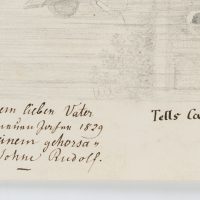 em lieben Vater
neuen Jahre 1829
einem gehorsa-
Sohne Rudolf.
Tells Ca